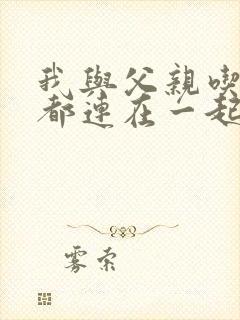 我與父親喫
都連在一起
雾索